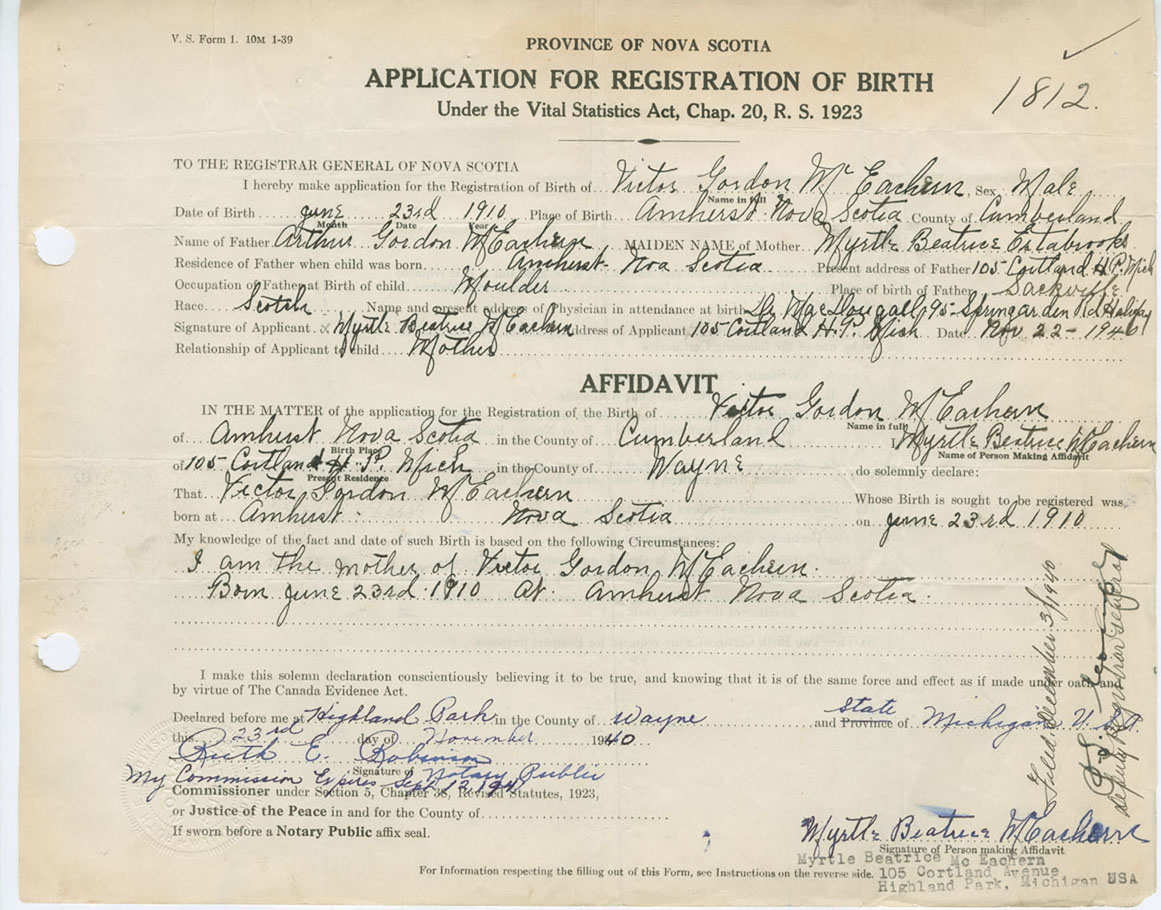 V. S. Form 1. 10M 1-39
PROVINCE OF NOVA SCOTIA
APPLICATION FOR REGISTRATION OF BIRTH
1812.
Under the Vital Statistics Act, Chap. 20, R. S. 1923
TO THE REGISTRAR GENERAL OF NOVA SCOTIA
I hereby make application for the Registration of Birth of Victor Gordon McEachern, Sex Male
Name in full
Date of Birth June 23rd 1910 Place of Birth Amherst Nova Scotia County of Cumberland
Month Date Year
Name of Father Arthur Gordon McEachern MAIDEN NAME of Mother Myrtle Beatrice Estabrooks
Residence of Father when child was born Amherst Noa Scotia Present address of Father 105 Cortland H.P. Mich
Occupation of Father at Birth of child Moulder Place of birth of Father Sackville
Race Scotch Name and present address of Physician in attendance at birth Dr MacDougall, 95 Springarden Rd Halifax
Signature of Applicant x Myrtle Beatrice McEachern Address of Applicant 105 Cortland H.P. Mich Date Nov 22-1940
Relationship of Applicant to child Mother
AFFIDAVIT
IN THE MATTER of the application for the Registration of the Birth of Victor Gordon McEachern
Name in full
of Amherst Nova Scotia in the County of Cumberland I, Myrtle Beatrice McEachern
Birth Place
Name of Person Making Affidavit
of 105 Cortland H.P. Mich in the County of Wayne do solemnly declare:
Present Residence
That Victor Gordon McEachern Whose Birth is sought to be registered was
born at Amherst Nova Scotia on June 23rd 1910
My knowledge of the fact and date of such Birth is based on the following Circumstances:
I am the mother of Victor Gordon McEachern.
Born June 23rd 1910 At Amherst Nova Scotia.
I make this solemn declaration conscientiously believing it to be true, and knowing that it is of the same force and effect as if made under oath and
by virtue of The Canada Evidence Act.
State
Declared before me at Highland Park in the County of Wayne and Province of Michigan U.S.A.
this 23rd day of November 1940
Ruth E. Robinson
Signature of Notary Public
My Commission Expires Sept 12, 194
Commissioner under Section 5, Chapter 38, Revised Statutes, 1923,
or Justice of the Peace in and for the County of
If sworn before a Notary Public affix seal.
Filed December 3/1940
deputy Registrar General
Myrtle Beatrice McEachern
Signature of Person making Affidavit
Myrtle Beatrice Mc Eachern
105 Cortland Avenue
Highland Park, Michigan USA
For Information respecting the filling out of this Form, see Instructions on the reverse side.